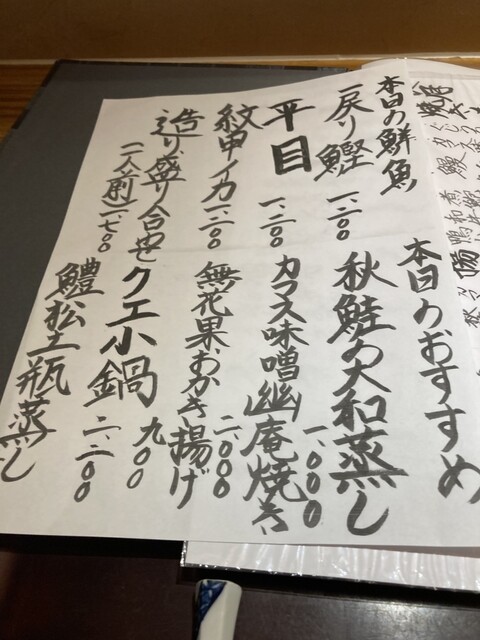 本日の鮮魚
戻り鰹
一、二〇〇
平目
一、二〇〇
紋甲イカ
一、二〇〇
造り盛り合せ
一、七〇〇
本日のおすすめ
秋鮭の大和蒸し
一、〇〇〇
カマス味噌幽庵焼き
二、〇〇〇
無花果おかき揚げ
九〇〇
クエ小鍋
二、二〇〇
鱧松土瓶蒸し